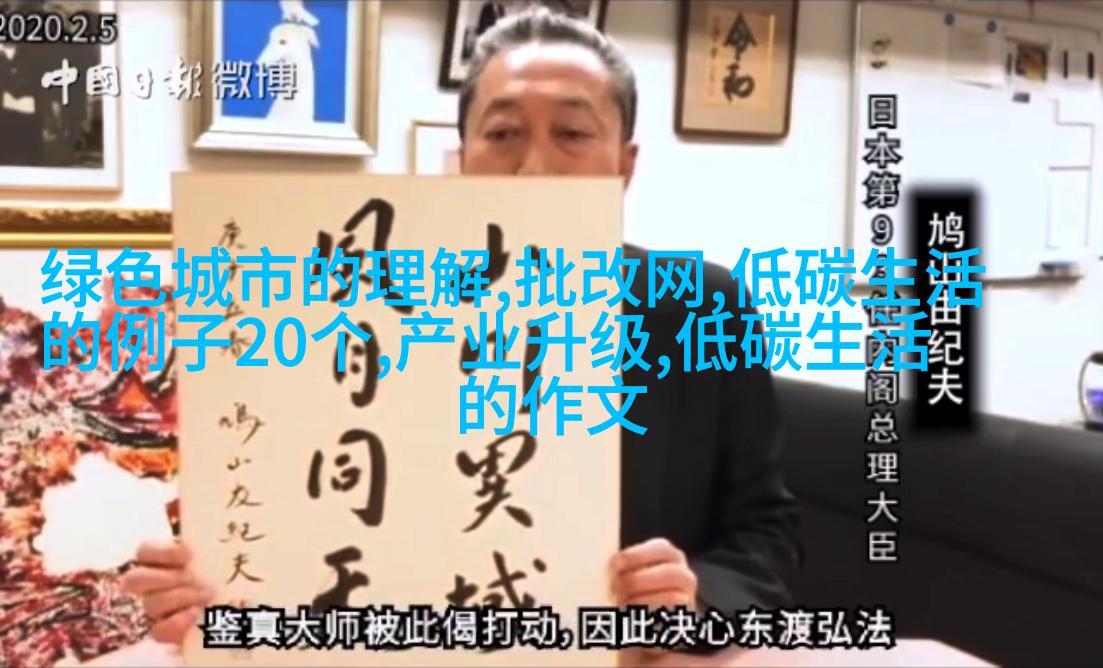 2020.2.5
中国日报微博
令和
绿色城市的理解,批改网,低碳生活
的例子20个,产业升级,低碳生活
的作文
山川異域
風月同天
鳩山友紀夫
日本第9 内阁总理大臣
鸠 由纪夫
鉴真大师被此偈打动,因此决心东渡弘法